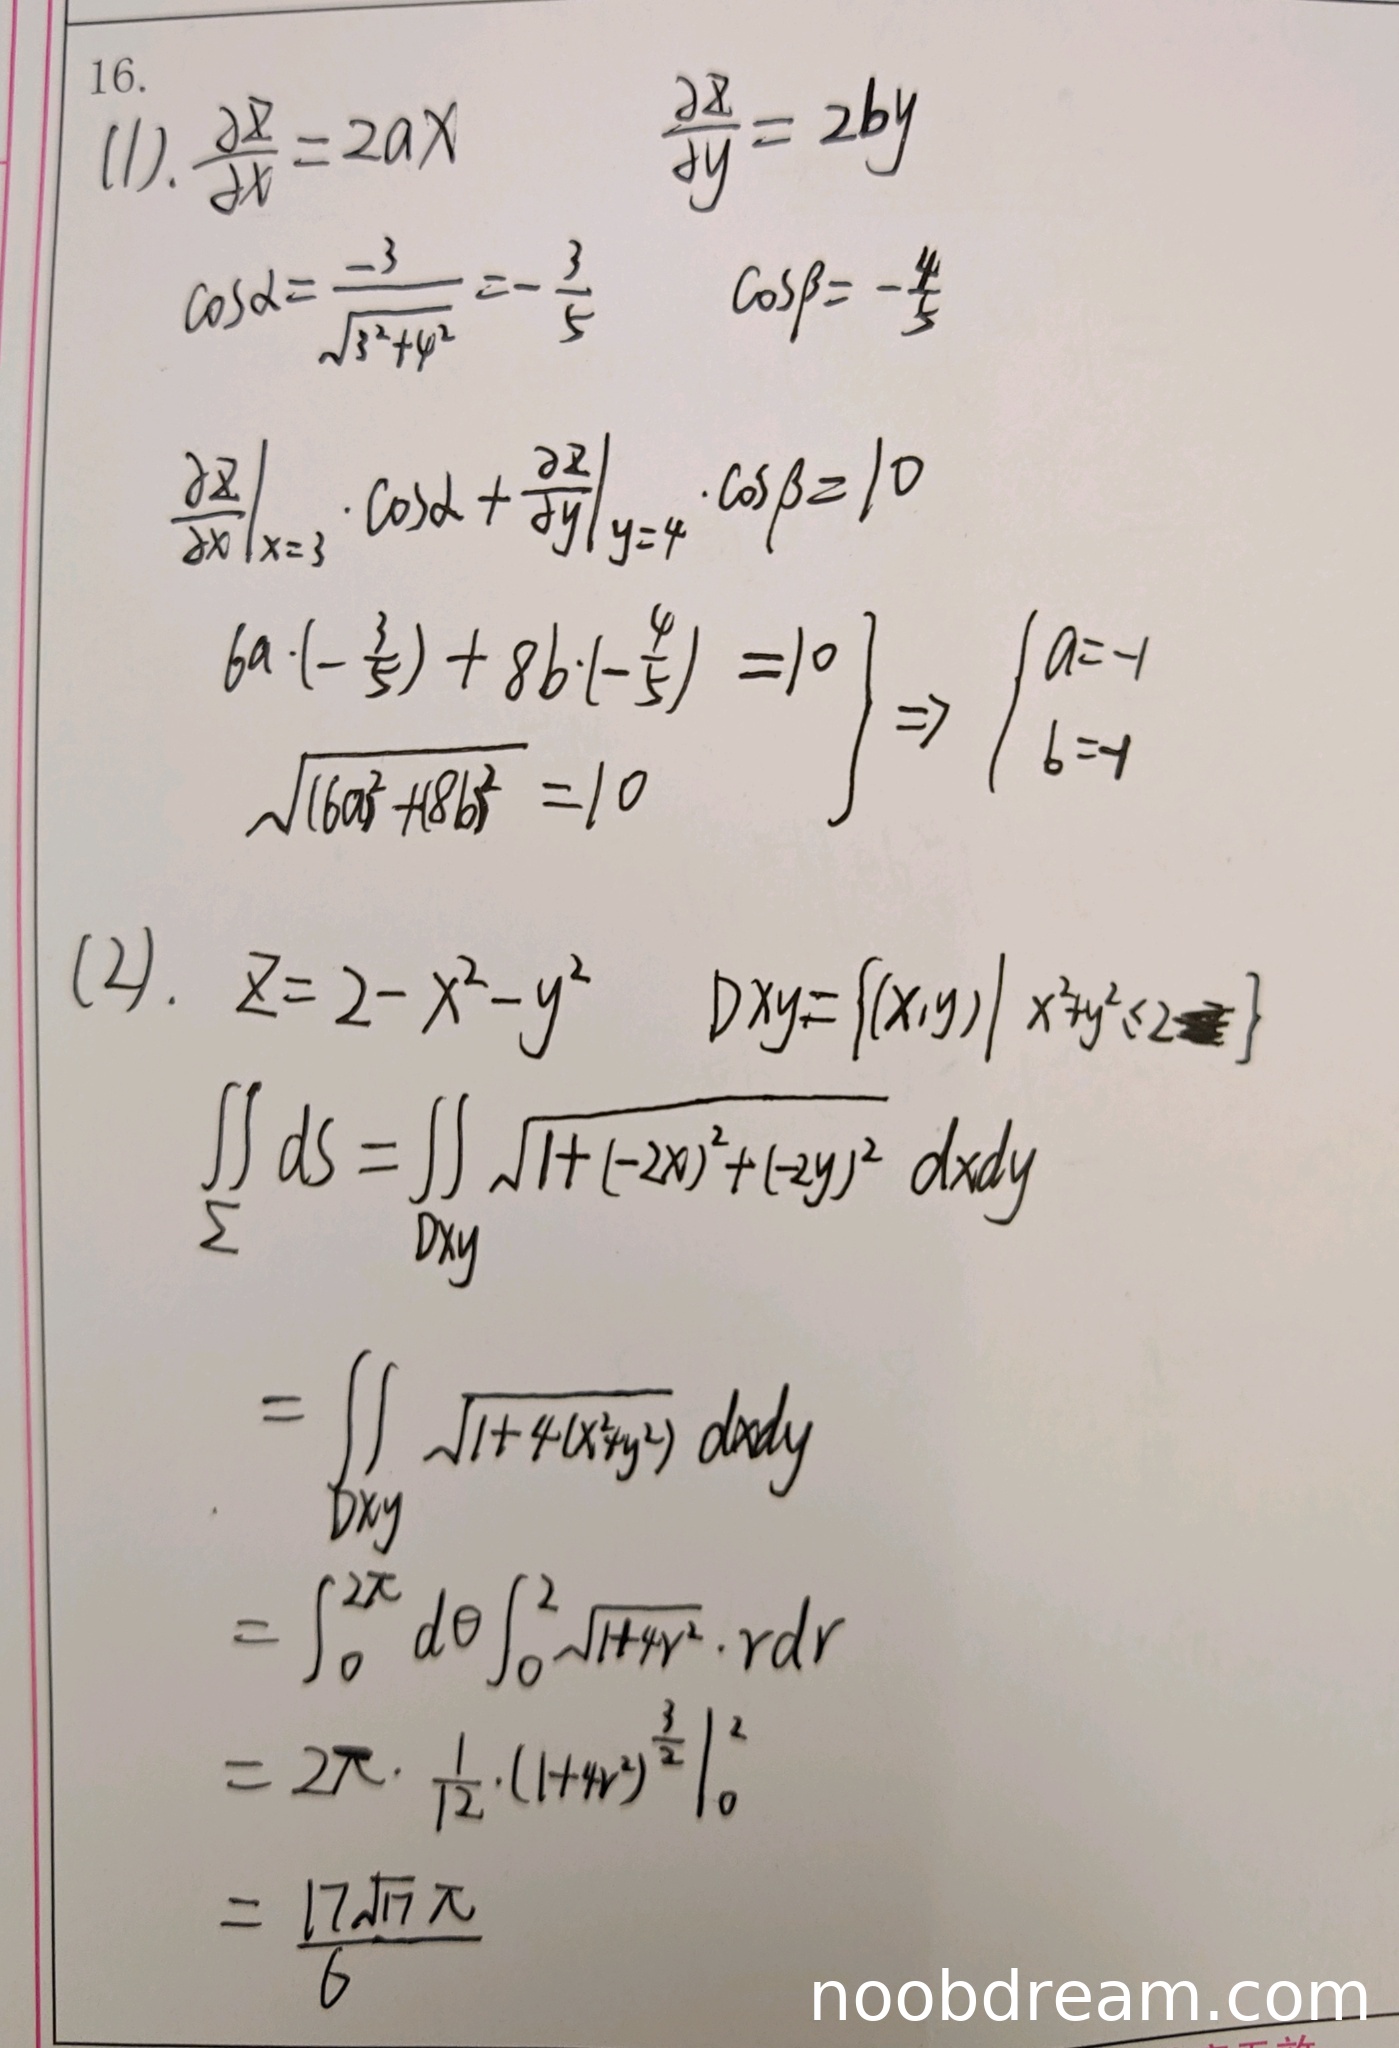 16.
(1). ∂z/∂x = 2ax    ∂z/∂y = 2by
cosα = -3/√(3²+4²) = -3/5    cosβ = -4/5
∂z/∂x|x=3 · cosα + ∂z/∂y|y=4 · cosβ = 10
6a·(-3/5) + 8b·(-4/5) = 10 } ⇒ { a=-1
√((6a)²+(8b)²) = 10    b=-1
(2). z = 2-x²-y²    Dxy = {(x,y)| x²+y²≤2}
∬Σ dS = ∬Dxy √(1+(-2x)²+(-2y)²) dxdy
= ∬Dxy √(1+4(x²+y²)) dxdy
= ∫₀^2π dθ ∫₀² √(1+4r²) · rdr
= 2π · 1/12 · (1+4r²)^(3/2) |₀²
= 17√17 π / 6
noobdream.com